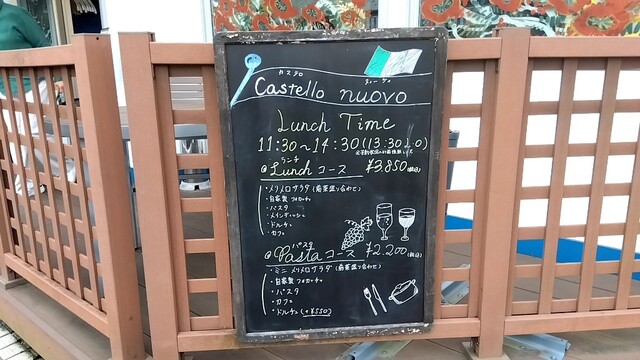 カステロ ヌォーヴォ
Castello nuovo
Lunch Time
11:30～14:30 (13:30 L.O)
ランチ
@Lunch コース ¥3,850(税込)
・メリメロサラダ(前菜盛り合わせ)
・自家製フォカッチャ
・パスタ
・メインディッシュ
・ドルチェ
・カフェ
パスタ
@Pasta コース ¥2,200(税込)
・ミニメリメロサラダ(前菜盛り合わせ)
・自家製フォカッチャ
・パスタ
・カフェ
・ドルチェ(+¥550)